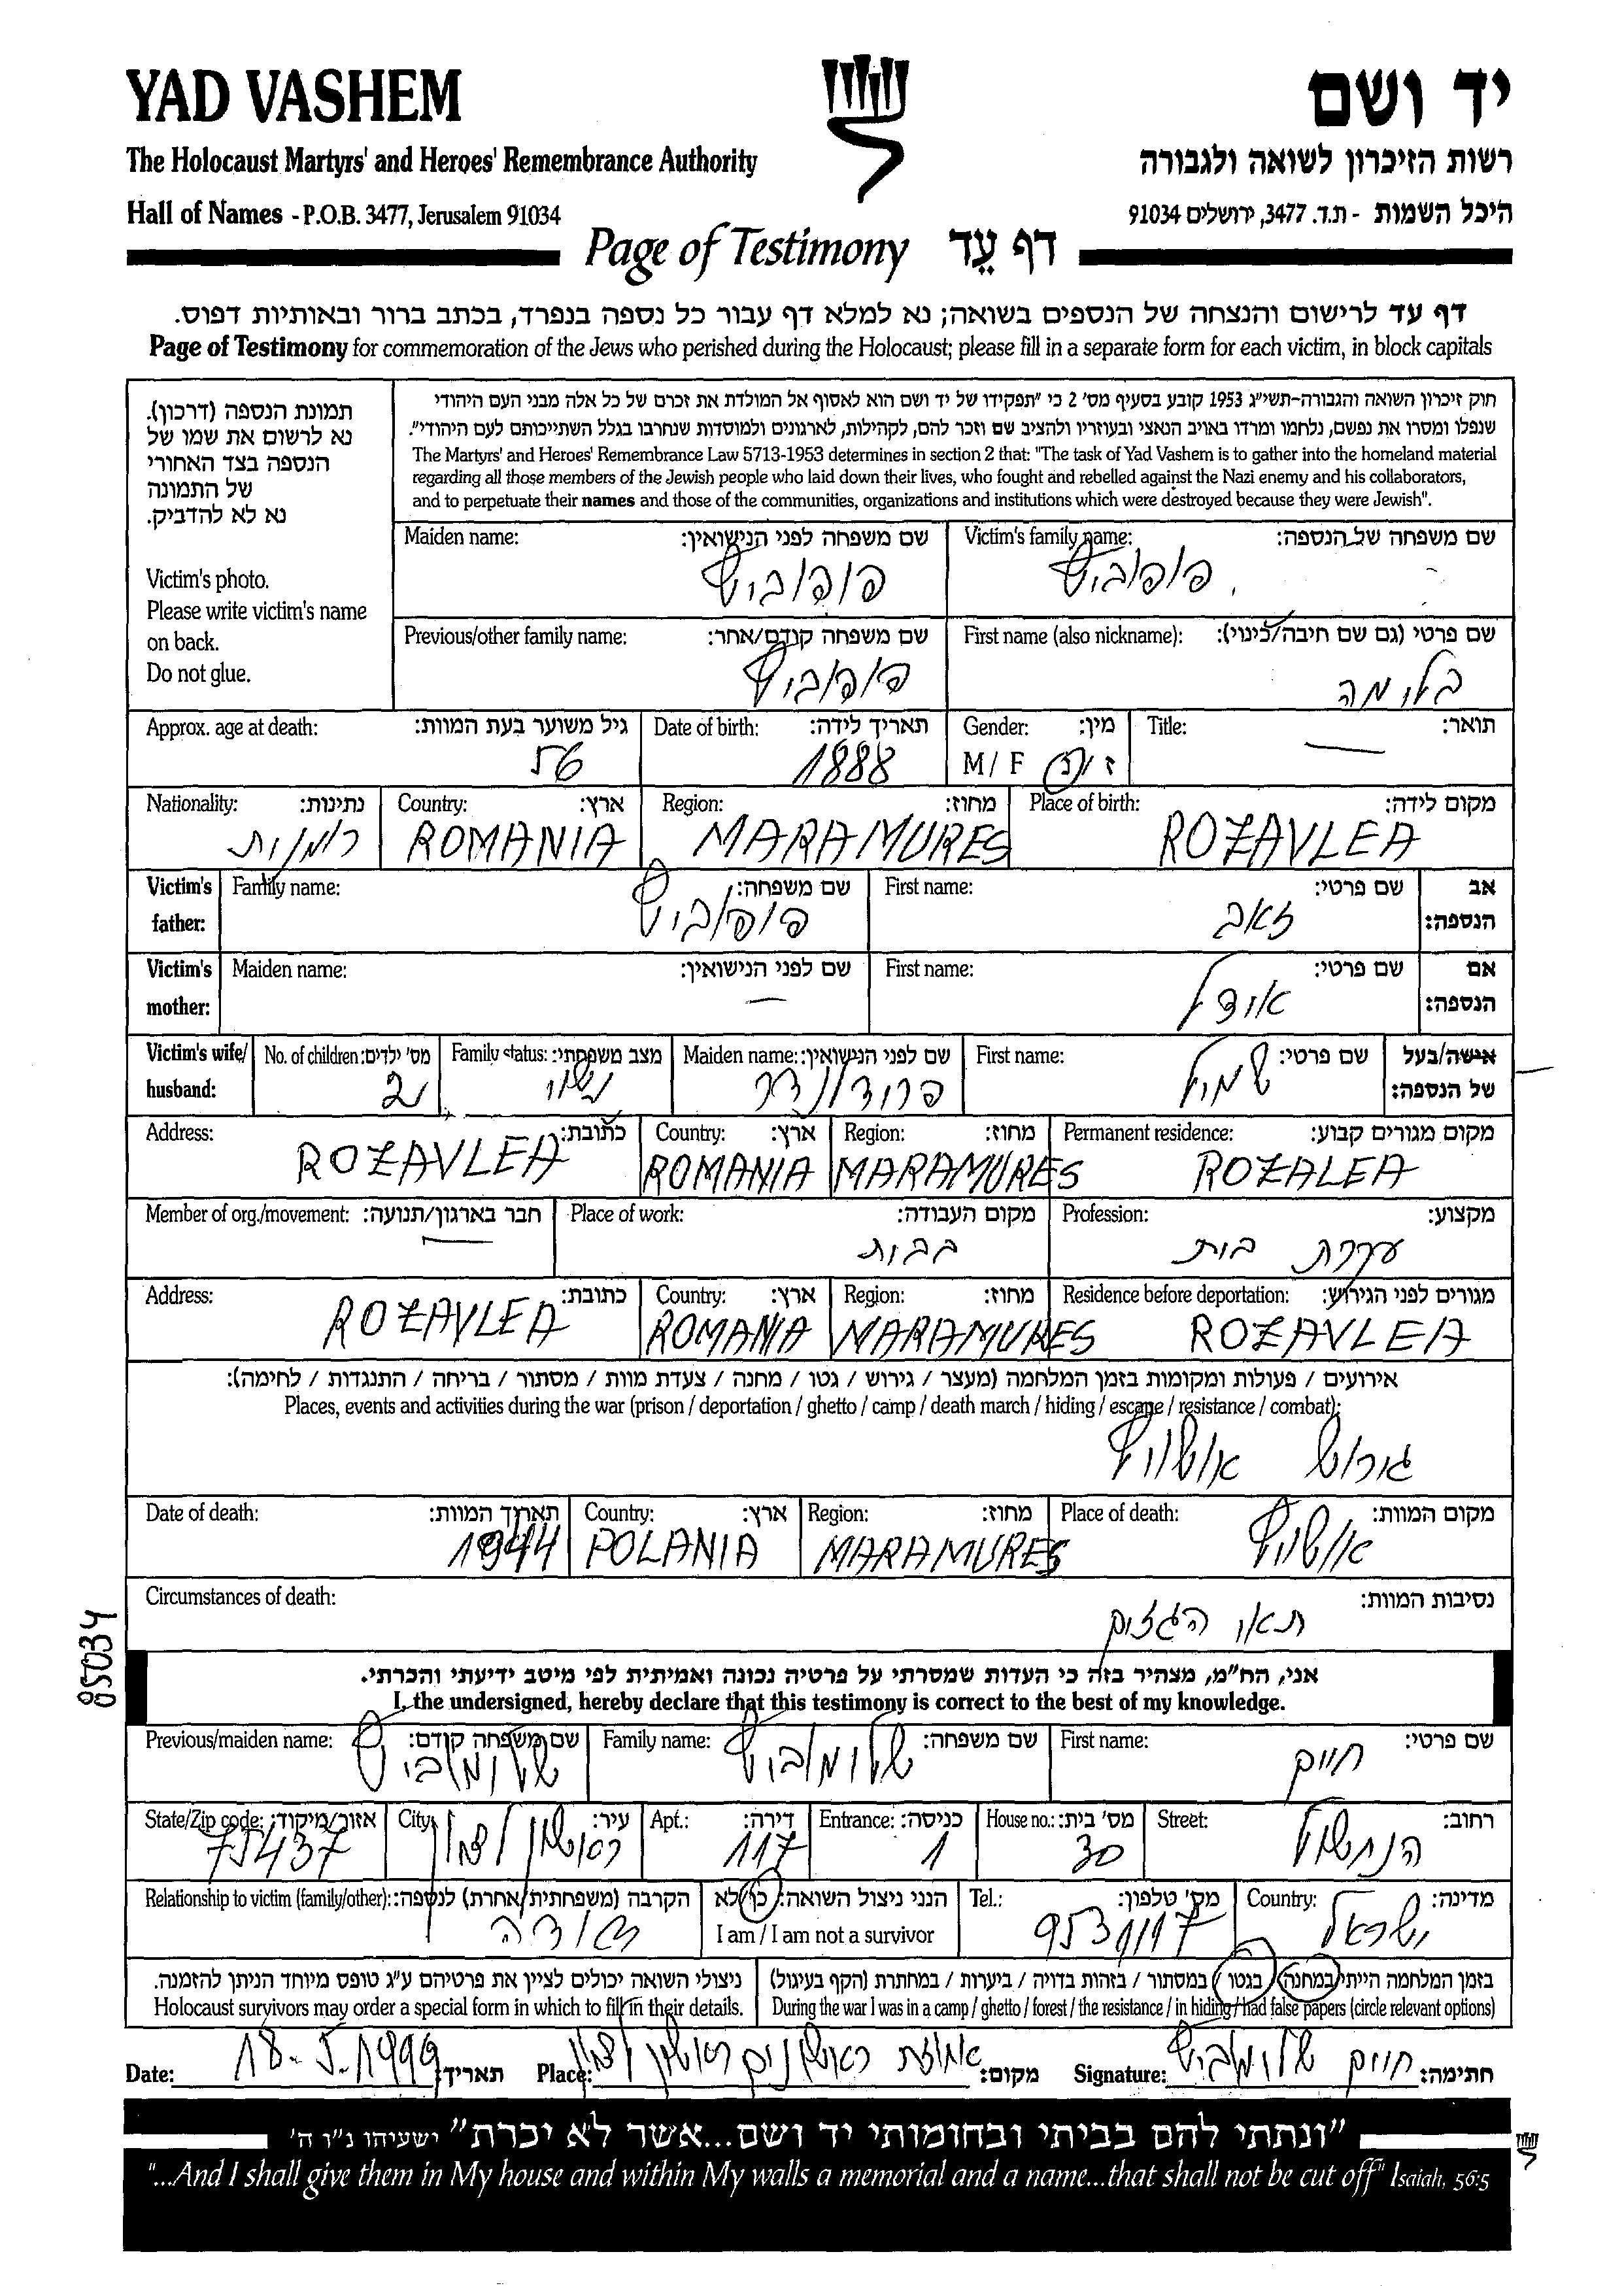 YAD VASHEM יד ושם
The Holocaust Martyrs' and Heroes' Remembrance Authority רשות הזיכרון לשואה ולגבורה
Hall of Names - P.O.B. 3477, Jerusalem 91034 היכל השמות - ת.ד. 3477, ירושלים 91034
Page of Testimony דף עֵד
דף עד לרישום והנצחה של הנספים בשואה; נא למלא דף עבור כל נספה בנפרד, בכתב ברור ובאותיות דפוס.
Page of Testimony for commemoration of the Jews who perished during the Holocaust; please fill in a separate form for each victim, in block capitals
תמונת הנספה (דרכון).
נא לרשום את שמו של
הנספה בצד האחורי
של התמונה
נא לא להדביק.
Victim's photo.
Please write victim's name
on back.
Do not glue.
חוק זיכרון השואה והגבורה-תשי"ג 1953 קובע בסעיף מס' 2 כי "תפקידו של יד ושם הוא לאסוף אל המולדת את זכרם של כל אלה מבני העם היהודי
שנפלו ומסרו את נפשם, נלחמו ומרדו באויב הנאצי ובעוזריו ולהציב שם וזכר להם, לקהילות, לארגונים ולמוסדות שנחרבו בגלל השתייכותם לעם היהודי".
The Martyrs' and Heroes' Remembrance Law 5713-1953 determines in section 2 that: "The task of Yad Vashem is to gather into the homeland material
regarding all those members of the Jewish people who laid down their lives, who fought and rebelled against the Nazi enemy and his collaborators,
and to perpetuate their names and those of the communities, organizations and institutions which were destroyed because they were Jewish".
Maiden name: שם משפחה לפני הנישואין: Victim's family name: שם משפחה של הנספה:
פופוביץ פופוביץ
Previous/other family name: שם משפחה קודם/אחר: First name (also nickname): שם פרטי (גם שם חיבה/כינוי):
פופוביץ בלומה
Approx. age at death: גיל משוער בעת המוות: Date of birth: תאריך לידה: Gender: מין: Title: תואר:
56 1888 M / F ז / נ
Nationality: נתינות: Country: ארץ: Region: מחוז: Place of birth: מקום לידה:
רומנית ROMANIA MARAMURES ROZAVLEA
Victim's father: Family name: שם משפחה: First name: שם פרטי: אב הנספה:
פופוביץ זאב
Victim's mother: Maiden name: שם לפני הנישואין: First name: שם פרטי: אם הנספה:
אודל
Victim's wife/ husband: No. of children: מס' ילדים: Family status: מצב משפחתי: Maiden name: שם לפני הנישואין: First name: שם פרטי: אישה/בעל של הנספה:
2 נשוי שמיל
Address: כתובת: Country: ארץ: Region: מחוז: Permanent residence: מקום מגורים קבוע:
ROZAVLEA ROMANIA MARAMURES ROZALEA
Member of org./movement: חבר בארגון/תנועה: Place of work: מקום העבודה: Profession: מקצוע:
בבית עקרת בית
Address: כתובת: Country: ארץ: Region: מחוז: Residence before deportation: מגורים לפני הגירוש:
ROZAVLEA ROMANIA MARAMURES ROZAVLEA
אירועים / פעולות ומקומות בזמן המלחמה (מעצר / גירוש / גטו / מחנה / צעדת מוות / מסתור / בריחה / התנגדות / לחימה):
Places, events and activities during the war (prison / deportation / ghetto / camp / death march / hiding / escape / resistance / combat):
גירוש אושוויץ
Date of death: תאריך המוות: Country: ארץ: Region: מחוז: Place of death: מקום המוות:
1944 POLANIA MARAMURES אושוויץ
Circumstances of death: נסיבות המוות:
תאי הגזים
85034
אני, הח"מ, מצהיר בזה כי העדות שמסרתי על פרטיה נכונה ואמיתית לפי מיטב ידיעתי והכרתי.
I, the undersigned, hereby declare that this testimony is correct to the best of my knowledge.
Previous/maiden name: שם משפחה קודם: Family name: שם משפחה: First name: שם פרטי:
שלומוביץ שלומוביץ חיים
State/Zip code: אזור/מיקוד: City: עיר: Apt.: דירה: Entrance: כניסה: House no.: מס' בית: Street: רחוב:
75437 ראשון לציון 117 1 30 הנחשול
Relationship to victim (family/other): הקרבה (משפחתית/אחרת) לנספה: הנני ניצול השואה: כן/לא Tel.: מס' טלפון: Country: מדינה:
I am / I am not a survivor 9531117 ישראל
ניצולי השואה יכולים לציין את פרטיהם ע"ג טופס מיוחד הניתן להזמנה. בזמן המלחמה הייתי במחנה / בגטו / במסתור / בזהות בדויה / ביערות / במחתרת (הקף בעיגול)
Holocaust survivors may order a special form in which to fill in their details. During the war I was in a camp / ghetto / forest / the resistance / in hiding / had false papers (circle relevant options)
Date: 18-5-1999 תאריך: Place: ראשונים ראשון לציון מקום: Signature: חיים שלומוביץ חתימה:
"ונתתי להם בביתי ובחומותי יד ושם...אשר לא יכרת" ישעיהו נ"ו ה'
"...And I shall give them in My house and within My walls a memorial and a name...that shall not be cut off" Isaiah, 56:5